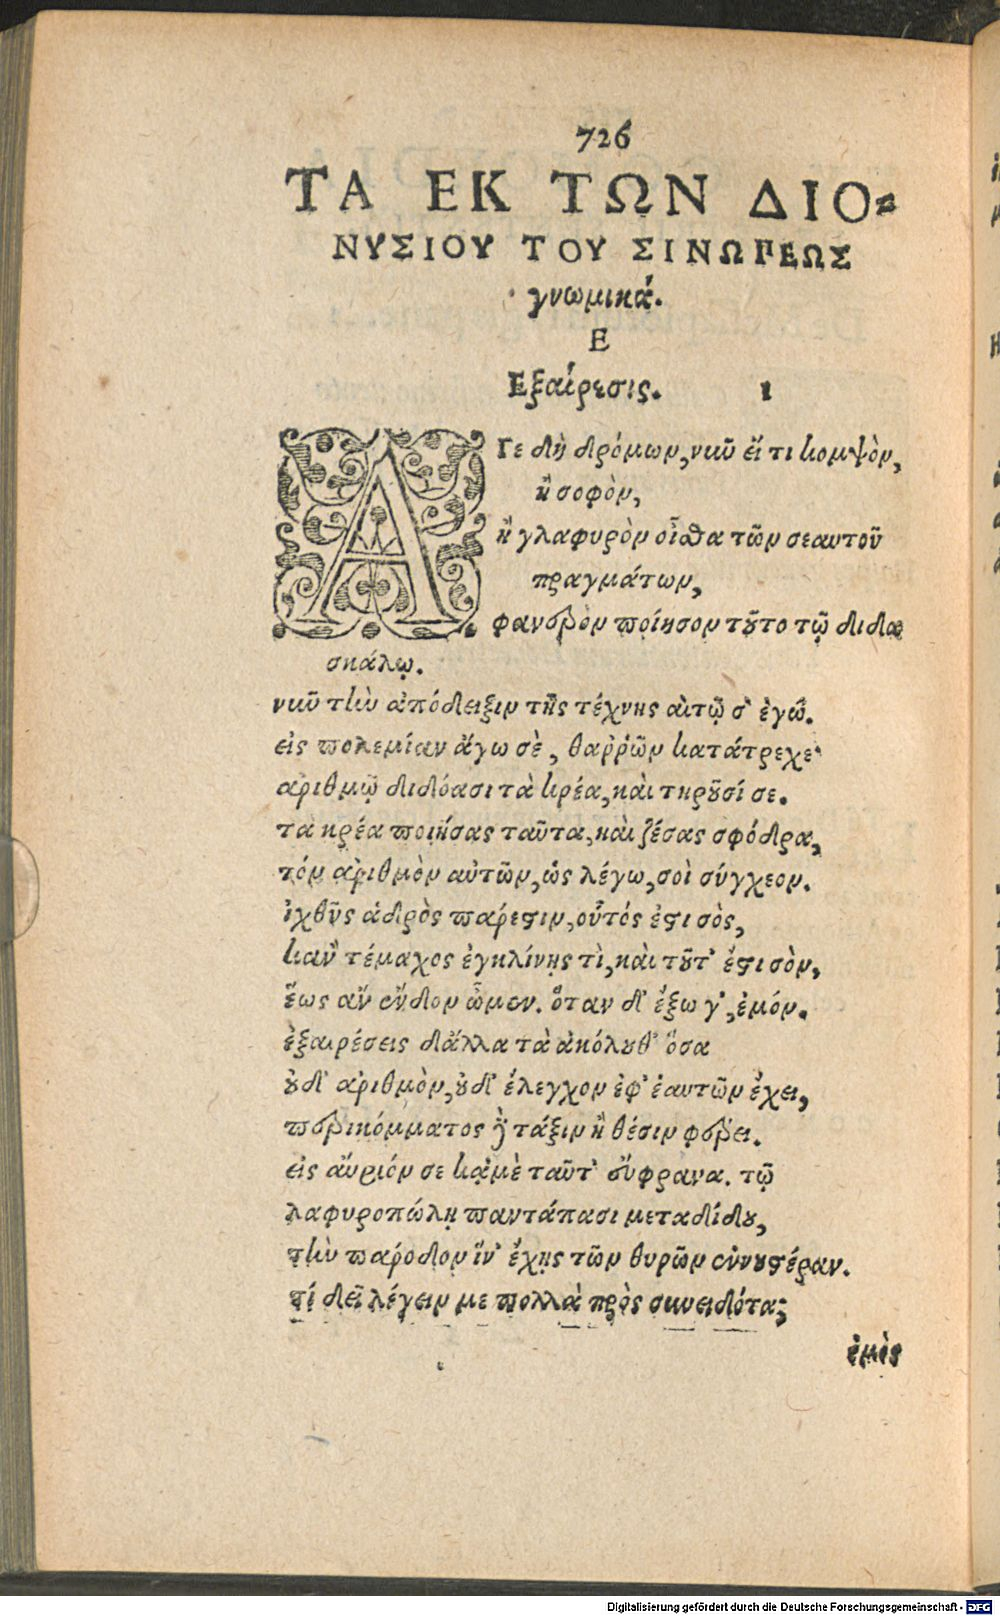 726
ΤΑ ΕΚ ΤΩΝ ΔΙΟ=
ΝΥΣΙΟΥ ΤΟΥ ΣΙΝΩΠΕΩΣ
γνωμικά.
Ε
Εξαίρεσις. 1
ΑΓε δὴ δρόμων, νιῦ εἴ τι κομψὸν,
ἢ σοφὸν,
ἢ γλαφυρὸν οἶσθα τῶν σεαυτοῦ
πραγμάτων,
φανερὸν ποίησον τοῦτο τῷ διδα
σκάλῳ.
νιῦ τὴν ἀπόδειξιν τῆς τέχνης αἰτῶ σ' ἐγώ.
εἰς πολεμίαν ἄγω σὲ, θαῤῥῶν κατάτρεχε
ἀριθμῷ διδόασι τὰ κρέα, καὶ τηροῦσί σε.
τὰ κρέα ποιήσας ταῦτα, καὶ ζέσας σφόδρα,
τόν ἀριθμὸν αὐτῶν, ὡς λέγω, σοὶ σύγχεον.
ἰχθῦς ἁδρὸς πάρεστιν, οὗτός ἐστι σὸς,
κἂν τέμαχος ἐγκλίνῃς τὶ, καὶ τοῦτ' ἔστι σὸν,
ἕως ἂν ἔνδον ὦμεν. ὅταν δ' ἔξω γ', ἐμόν.
ἐξαιρέσεις δἄλλα τὰ ἀκόλουθ' ὅσα
οὐδ' ἀριθμὸν, οὐδ' ἔλεγχον ἐφ' ἑαυτῶν ἔχει,
περικόμματος ἢ τάξιν ἢ θέσιν φέρει.
εἰς αὔριόν σε κἀμὲ ταῦτ' εὔφρανα. τῷ
λαφυροπώλῃ παντάπασι μεταδίδου,
τὴν πάροδον ἵν' ἔχῃς τῶν θυρῶν εὐνουστέραν.
τί δεῖ λέγειν με πολλὰ πρὸς συνειδότα;
ἐμὸς